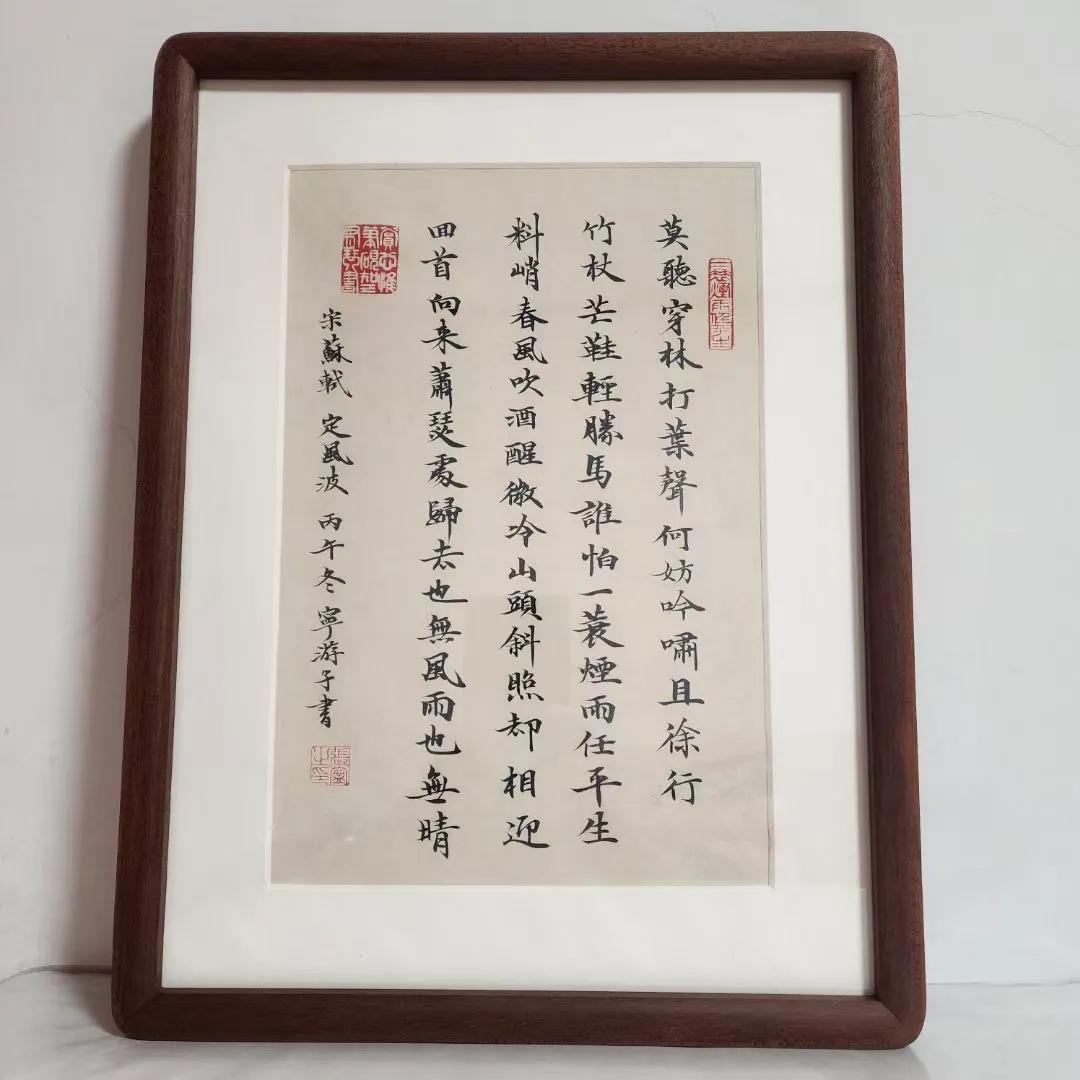 莫聽穿林打葉聲何妨吟嘯且徐行
竹杖芒鞋輕勝馬誰怕一蓑煙雨任平生
料峭春風吹酒醒微冷山頭斜照却相迎
回首向来蕭瑟處歸去也無風雨也無晴
宋蘇軾 定風波 丙午冬 寧游子書